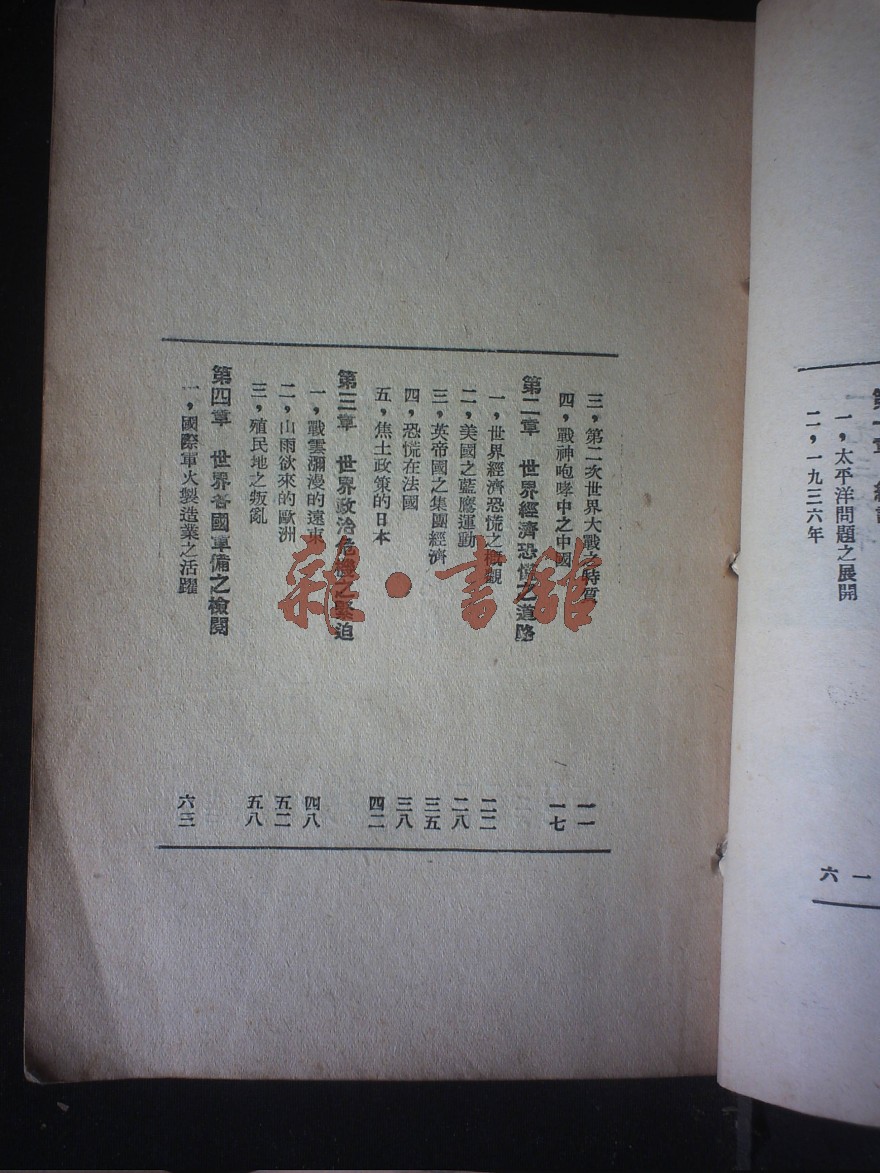 一，太平洋問題之展開 一
二，一九三六年 六
三，第二次世界大戰之特質 一一
四，戰神咆哮中之中國 一七
第二章 世界經濟恐慌之道路
一，世界經濟恐慌之概觀 二二
二，美國之藍鷹運動 二八
三，英帝國之集團經濟 三五
四，恐慌在法國 三八
五，焦土政策的日本 四二
第三章 世界政治危機之緊迫
一，戰雲瀰漫的遠東 四八
二，山雨欲來的歐洲 五二
三，殖民地之叛亂 五八
第四章 世界各國軍備之檢閱
一，國際軍火製造業之活躍 六三
雜·書館